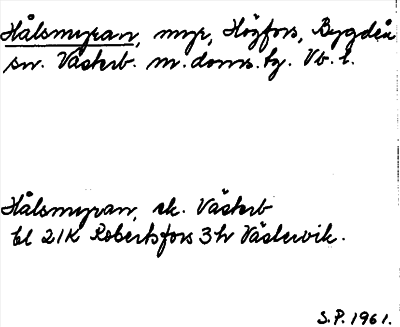 Hålsmyran, myr, Högfors, Bygdeå
sn. Västerb. m. doms. tg. Vb. l.
Hålsmyran, ek. Västerb
bl 21K Robertsfors 3h Västervik.
S.P. 1961.